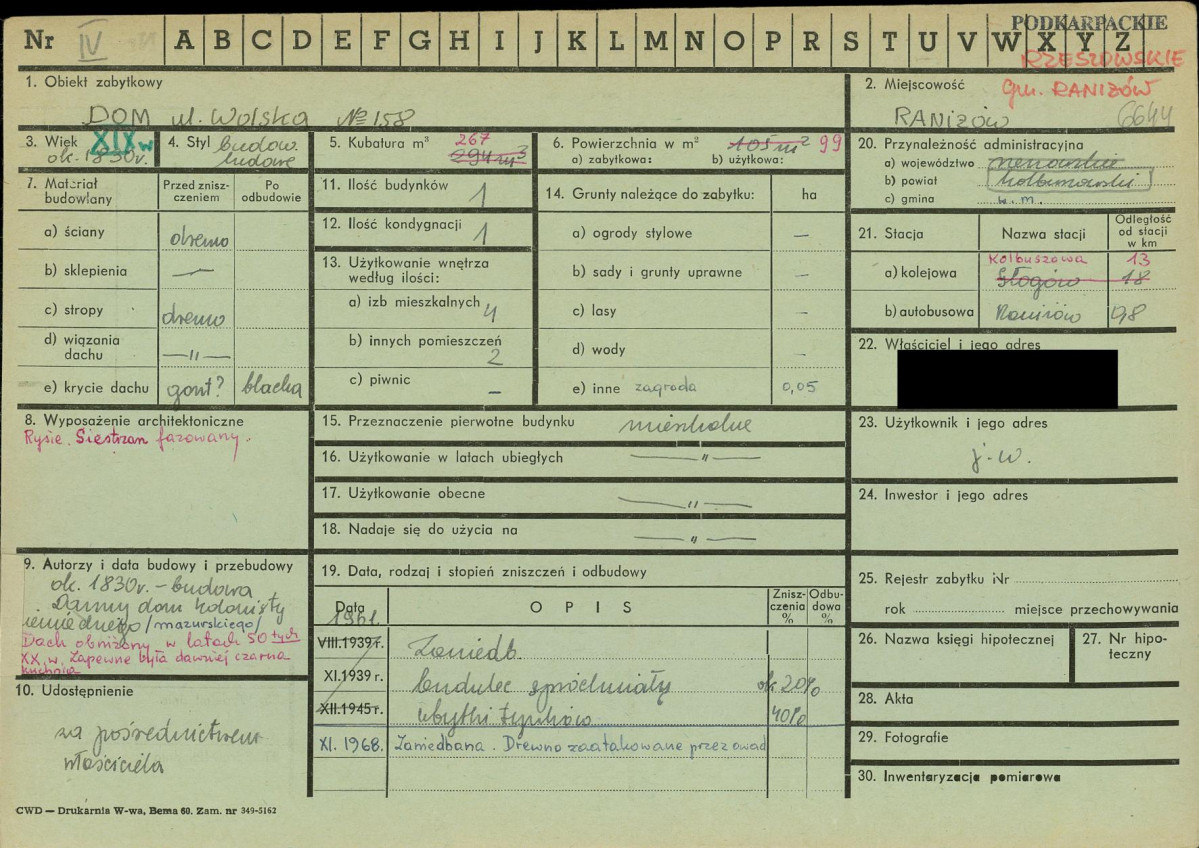 PODKARPACKIE
Nr IV A B C D E F G H I J K L M N O P R S T U V W X Y Z
RZESZOWSKIE
1. Obiekt zabytkowy
DOM ul. Wolska № 158
2. Miejscowość gm. RANIŻÓW
RANIŻÓW 6644
3. Wiek XIX w
ok. 1830r.
4. Styl budow.
ludowe
5. Kubatura m³ 267
294 m³
6. Powierzchnia w m² 105 m² 99
a) zabytkowa: b) użytkowa:
7. Materiał budowlany
Przed zniszczeniem
Po odbudowie
a) ściany drewno
b) sklepienia —
c) stropy drewno
d) wiązania dachu —"—
e) krycie dachu gont? blacha
8. Wyposażenie architektoniczne
Rysie. Siestrzan fazowany.
9. Autorzy i data budowy i przebudowy
ok. 1830r. – budowa
Dawny dom kolonisty
niemieckiego /mazurskiego/
Dach obniżony w latach 50 tych
XX w. Zapewne była dawniej czarna
kuchnia
10. Udostępnienie
za pośrednictwem
właściciela
11. Ilość budynków 1
12. Ilość kondygnacji 1
13. Użytkowanie wnętrza
według ilości:
a) izb mieszkalnych 4
b) innych pomieszczeń
2
c) piwnic –
14. Grunty należące do zabytku: ha
a) ogrody stylowe –
b) sady i grunty uprawne –
c) lasy –
d) wody –
e) inne zagroda 0,05
15. Przeznaczenie pierwotne budynku mieszkalne
16. Użytkowanie w latach ubiegłych —"—
17. Użytkowanie obecne —"—
18. Nadaje się do użycia na —"—
19. Data, rodzaj i stopień zniszczeń i odbudowy
Data O P I S Zniszczenia % Odbudowa %
1961.
VIII.1939 r. Zaniedb.
XI.1939 r. budulec spróchniały ok 20%
XII.1945 r. ubytki tynków 40%
XI. 1968. Zaniedbana. Drewno zaatakowane przez owad
20. Przynależność administracyjna
a) województwo rzeszowskie
b) powiat kolbuszowski
c) gmina w. m.
21. Stacja Nazwa stacji Odległość od stacji w km
Kolbuszowa 13
a) kolejowa Głogów 18
b) autobusowa Raniżów 0,8
22. Właściciel i jego adres
23. Użytkownik i jego adres
j. w.
24. Inwestor i jego adres
25. Rejestr zabytku Nr
rok miejsce przechowywania
26. Nazwa księgi hipotecznej
27. Nr hipoteczny
28. Akta
29. Fotografie
30. Inwentaryzacja pomiarowa
CWD — Drukarnia W-wa, Bema 60. Zam. nr 349-5162